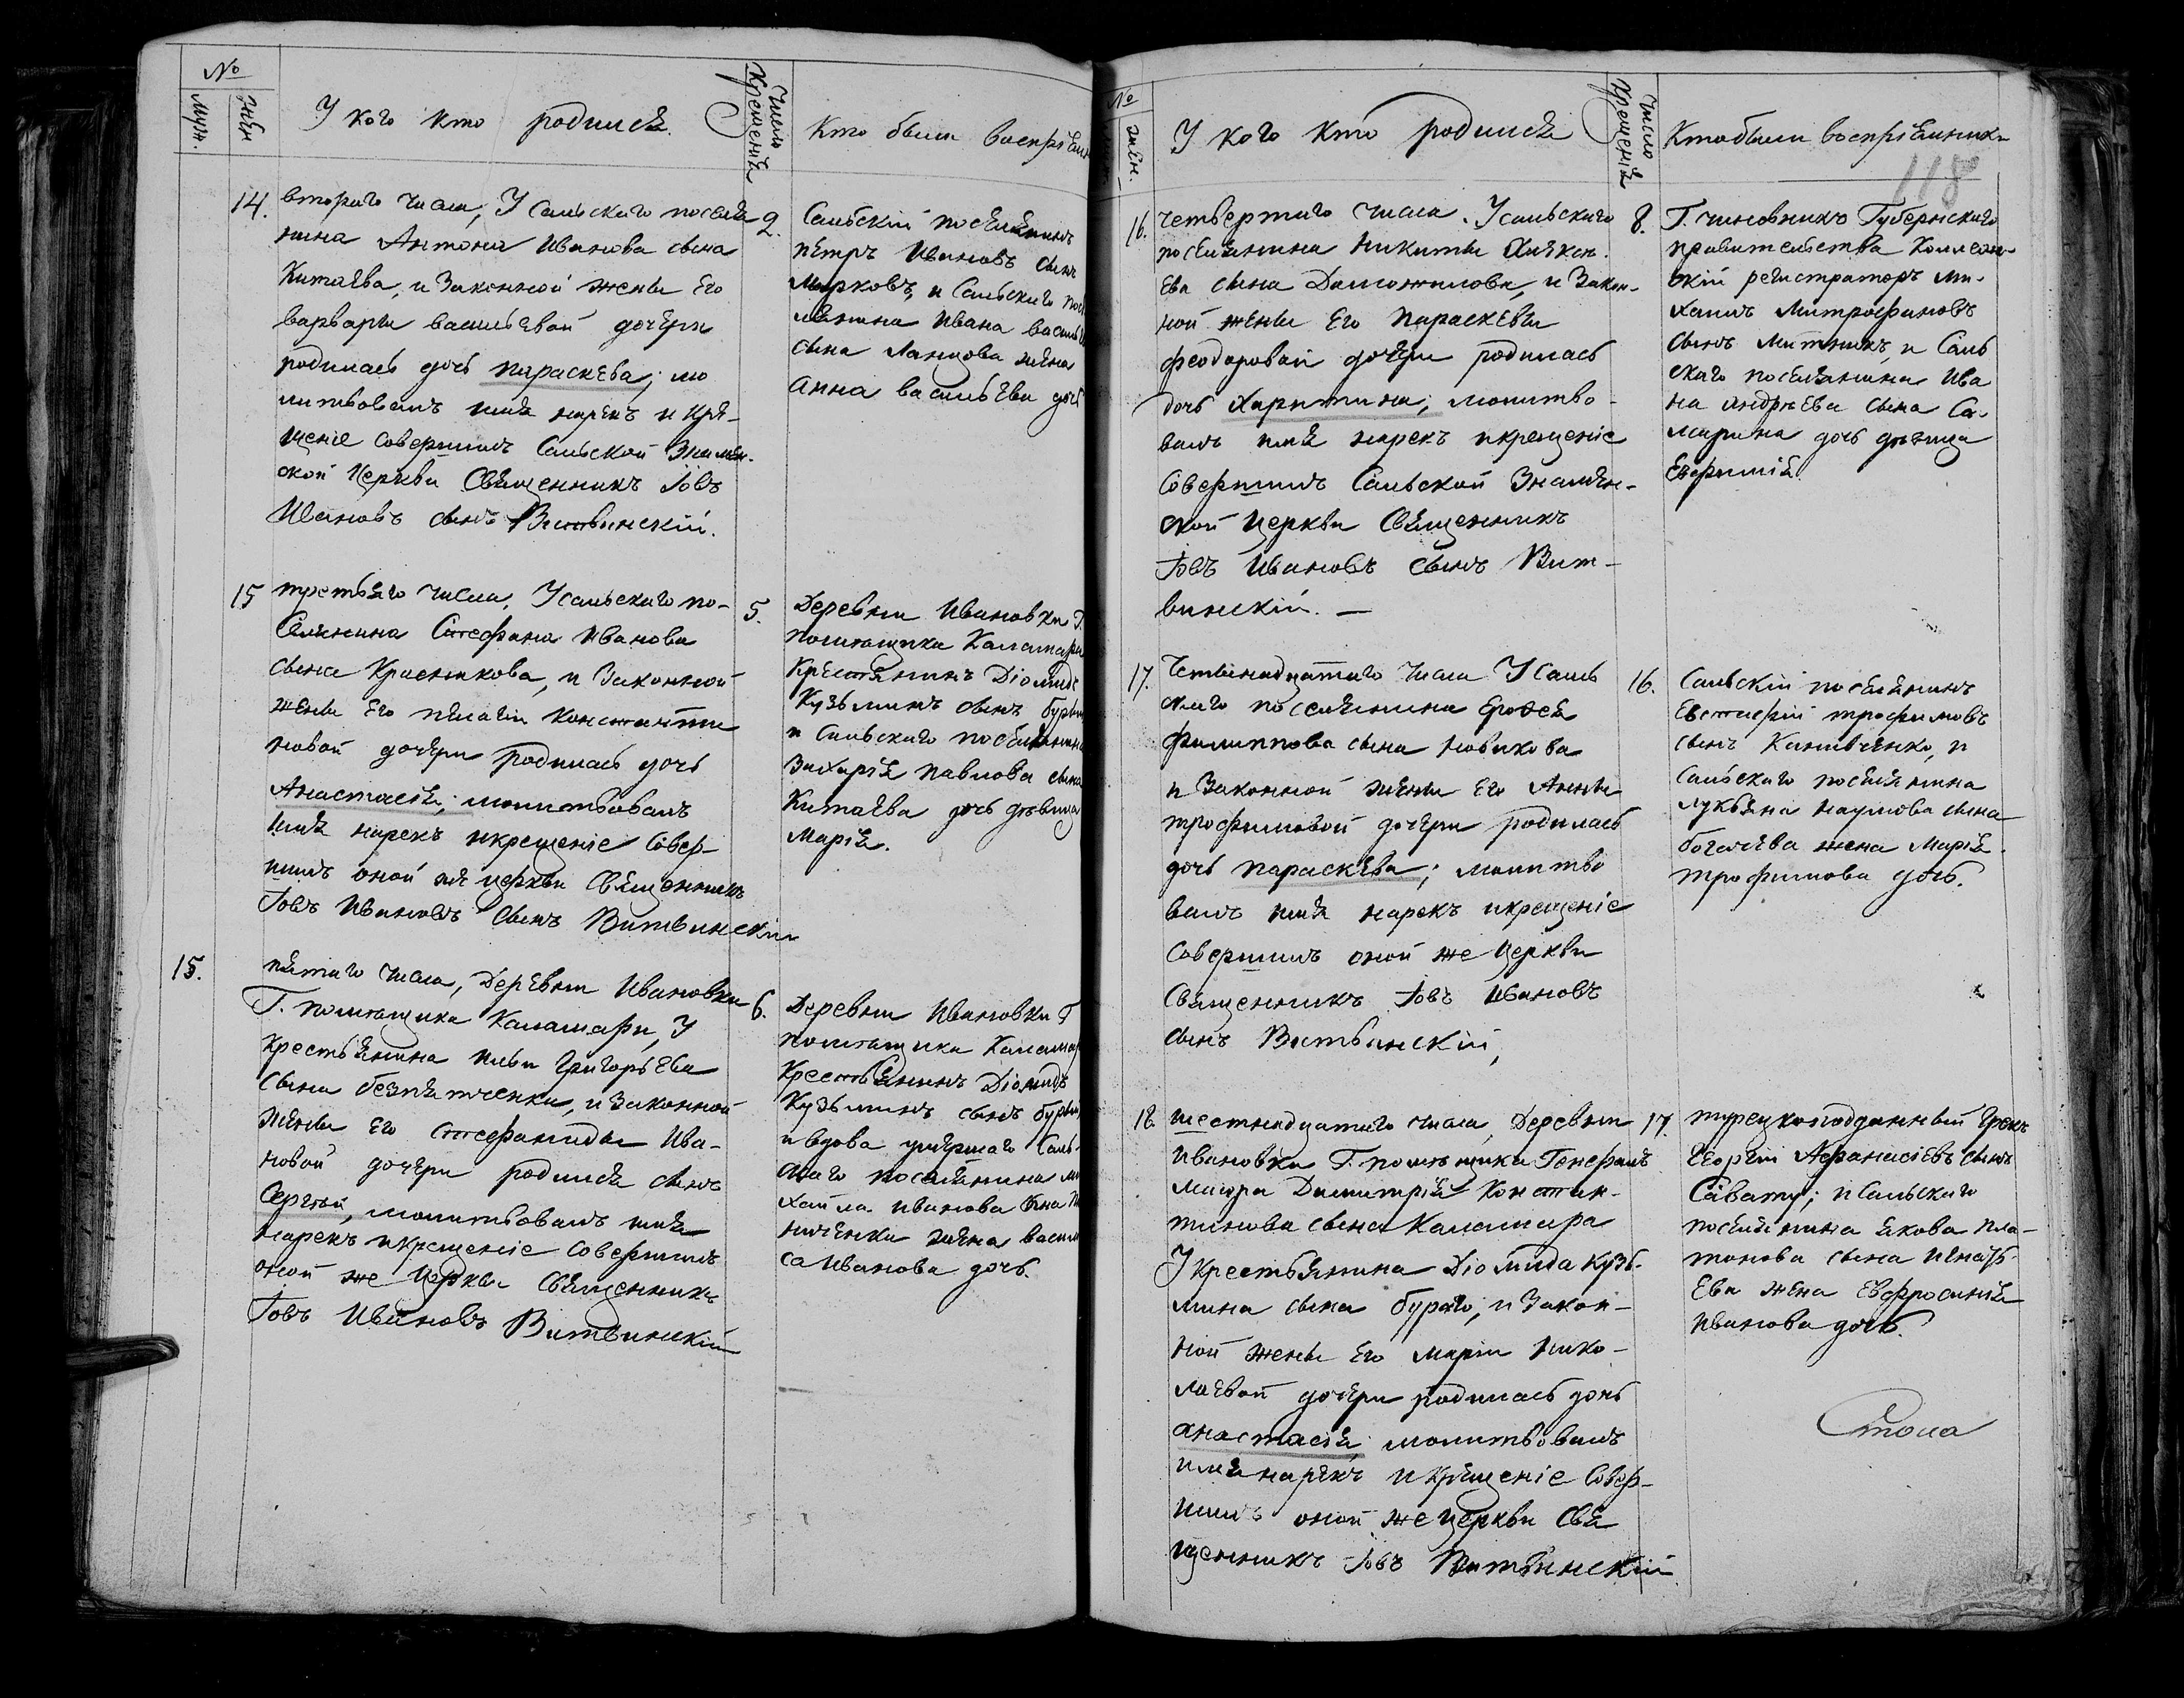 №
Муж.
Жен
У кого кто родился.
Число
Крещенія
Кто были воспріем
14.
второго числа, У Сальского поселя
нина Антона Иванова сына
Китаева, и Законной жены Его
варвары васильевой дочери
родилась дочь параскева; мо
литвовалъ имя нарекъ и кре-
щеніе Совершилъ Сальской Знамен-
ской Церкви Священникъ Іовъ
Ивановъ сынъ Витвинскій.
2.
Сальскій поселянинъ
петръ Ивановъ сынъ
Марковъ, и Сальского посе
лянина Ивана васильев
сына Ланцова жена
Анна васильева дочь
15
третьяго числа, У сальскаго по-
селянина Стефана Иванова
сына Красникова, и Законной
жены Его пелагіи Константи
новой дочери родилась дочь
Анастасія; молитвовалъ
имя нарекъ и крещеніе Совер-
шилъ оной же церкви Священникъ
Іовъ Ивановъ Сынъ Витвинскій
5.
Деревни Ивановки Г.
помѣщика Каламари
Крестянинъ Діомидъ
Кузьминъ сынъ бурый
и Сальскаго поселянина
Захарія павлова сына
Китаева дочь дѣвица
Марія.
15.
пятаго числа, Деревни Ивановки
Г. помѣщика Каламари, У
крестьянина Ильи Григорьева
сына безпятченка, и Законной
жены Его Стефаниды Ива-
новой дочери родился сынъ
Сергій, молитвовалъ имя
нарекъ и крещеніе Совершилъ
оной же Церкви Священникъ
Іовъ Ивановъ Витвинскій
6.
Деревни Ивановки Г
помѣщика Калама
Крестьянинъ Діомидъ
Кузьминъ сынъ бурый
и вдова умершаго Саль-
скаго поселянина ми
хаила Иванова сына
ниченка жена васи
са Иванова дочь.
№
жен.
У кого кто родился
Число
Крещенія
Кто были воспріемники
118
16.
четвертаго числа. У сальскаго
поселянина Никиты Алексе.
ева сына Доможилова, и Закон-
ной жены Его параскевы
феодоровой дочери родилась
дочь Харитина; молитво-
валъ имя нарекъ и крещеніе
Совершилъ Сальской Знамен-
ской церкви Священникъ
Іовъ Ивановъ Сынъ Вит-
винскій. —
8.
Г. чиновникъ Губернскаго
правительства Коллеж-
скій регистраторъ Ми-
хаилъ Митрофановъ
сынъ Митникъ, и Саль
скаго поселянина Ива
на Андрѣева сына Са-
марина дочь дѣвица
Евфимія.
17.
Четвінадцатаго числа У Саль
скаго поселянина Ерофея
филиппова сына Новикова
и Законной жены Его Анны
трофимовой дочери родилась
дочь параскева; молитво
валъ имя нарекъ и крещеніе
Совершилъ оной же Церкви
Священникъ Іовъ Ивановъ
сынъ Витвинскій,
16.
Сальскій поселянинъ
Евстафій трофимовъ
сынъ Канивченко, и
Сальскаго поселянина
лукьяна наумова сына
богачева жена Марія
трофимова дочь.
18.
шестнадцатаго числа, Деревни
Ивановки Г. помѣщика Генералъ
маіора Димитрія Констан-
тинова сына Каламара
У Крестьянина Діомида Кузь-
мина сына бураго, и Закон-
ной жены Его маріи Нико-
лаевой дочери родилась дочь
Анастасія молитвовалъ
имя нарекъ и Крещеніе Совер-
шилъ оной же Церкви Свя
щенникъ Іовъ Витвинскій
17.
турецкоподданный грекъ
Георгій Афанасіевъ сынъ
Савату; и Сальскаго
поселянина Якова Пла-
тонова сына Игнать-
Ева жена Евфросинія
Иванова дочь.
Стола